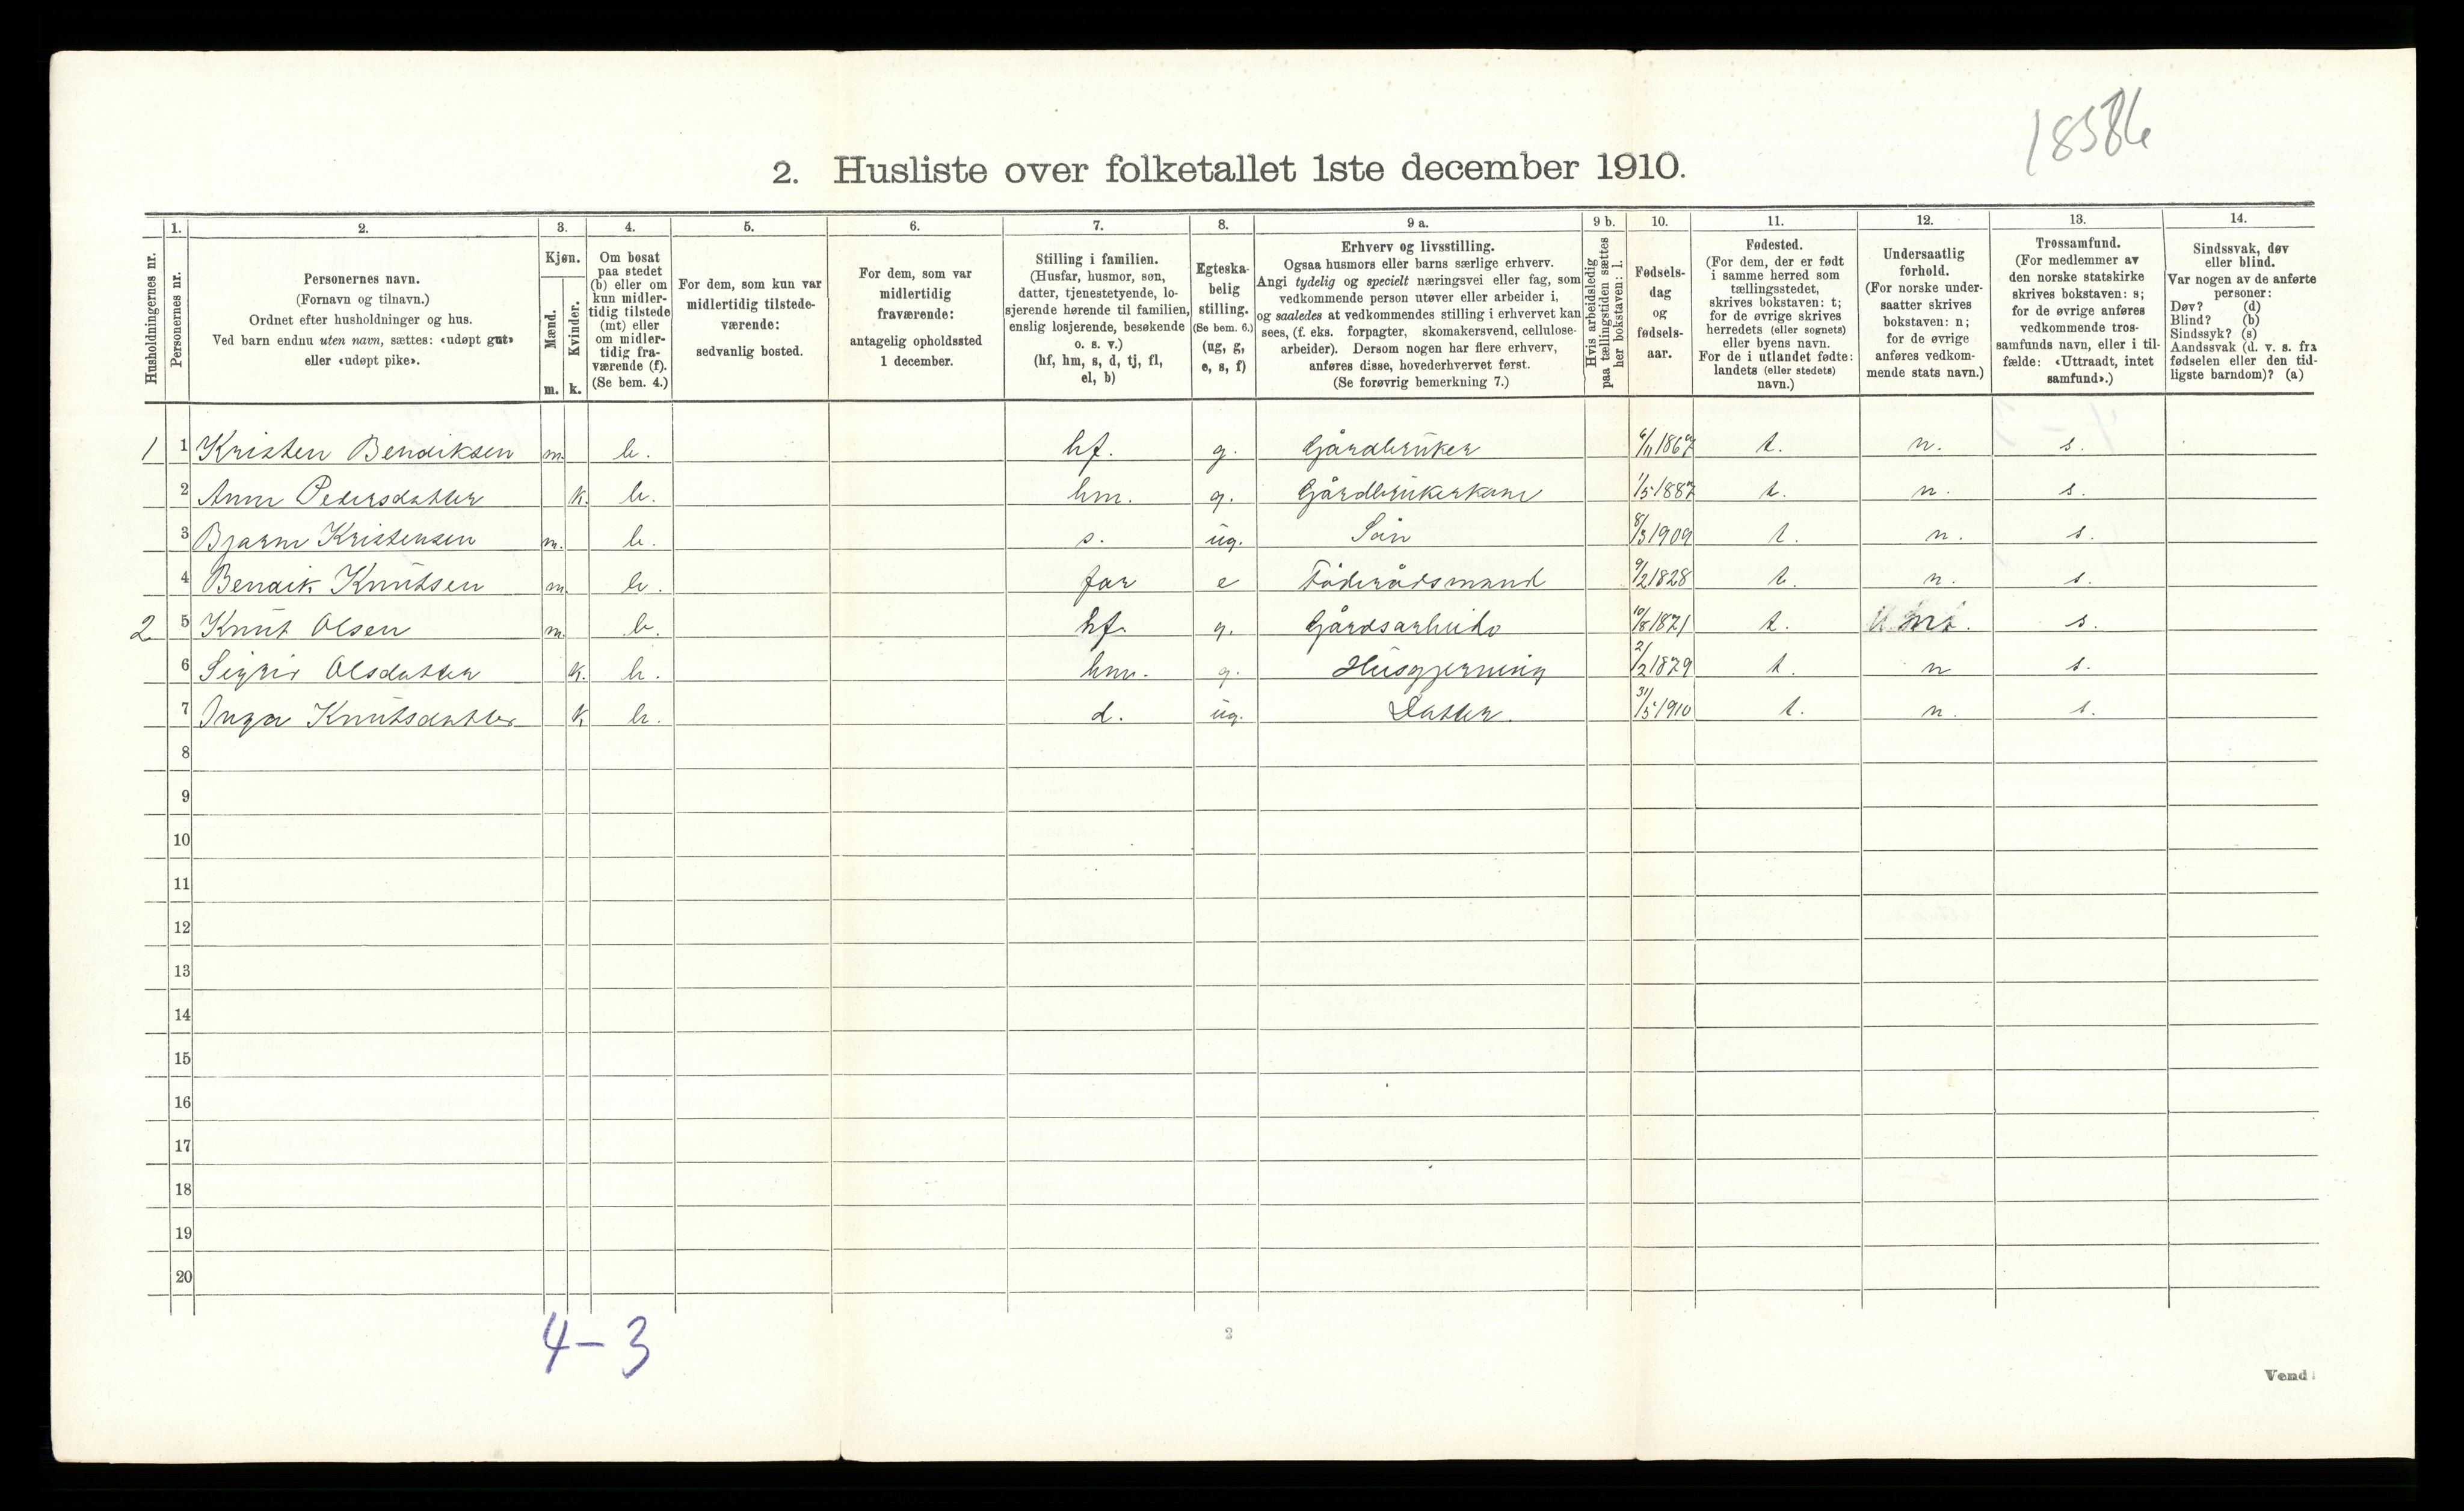 18586
2. Husliste over folketallet 1ste december 1910.
Husholdningernes nr.
1.
Personernes nr.
2.
Personernes navn.
(Fornavn og tilnavn.)
Ordnet efter husholdninger og hus.
Ved barn endnu uten navn, sættes: «udøpt gut»
eller «udøpt pike».
3.
Kjøn.
Mænd.
m.
Kvinder.
k.
4.
Om bosat
paa stedet
(b) eller om
kun midler-
tidig tilstede
(mt) eller
om midler-
tidig fra-
værende (f).
(Se bem. 4.)
5.
For dem, som kun var
midlertidig tilstede-
værende:
sedvanlig bosted.
6.
For dem, som var
midlertidig
fraværende:
antagelig opholdssted
1 december.
7.
Stilling i familien.
(Husfar, husmor, søn,
datter, tjenestetyende, lo-
sjerende hørende til familien,
enslig losjerende, besøkende
o. s. v.)
(hf, hm, s, d, tj, fl,
el, b)
8.
Egteska-
belig
stilling.
(Se bem. 6.)
(ug, g,
e, s, f)
9 a.
Erhverv og livsstilling.
Ogsaa husmors eller barns særlige erhverv.
Angi tydelig og specielt næringsvei eller fag, som
vedkommende person utøver eller arbeider i,
og saaledes at vedkommendes stilling i erhvervet kan
sees, (f. eks. forpagter, skomakersvend, cellulose-
arbeider). Dersom nogen har flere erhverv,
anføres disse, hovederhvervet først.
(Se forøvrig bemerkning 7.)
9 b.
Hvis arbeidsledig
paa tællingstiden sættes
her bokstaven: l.
10.
Fødsels-
dag
og
fødsels-
aar.
11.
Fødested.
(For dem, der er født
i samme herred som
tællingsstedet,
skrives bokstaven: t;
for de øvrige skrives
herredets (eller sognets)
eller byens navn.
For de i utlandet fødte:
landets (eller stedets)
navn.)
12.
Undersaatlig
forhold.
(For norske under-
saatter skrives
bokstaven: n;
for de øvrige
anføres vedkom-
mende stats navn.)
13.
Trossamfund.
(For medlemmer av
den norske statskirke
skrives bokstaven: s;
for de øvrige anføres
vedkommende tros-
samfunds navn, eller i til-
fælde: «Uttraadt, intet
samfund».)
14.
Sindssvak, døv
eller blind.
Var nogen av de anførte
personer:
Døv? (d)
Blind? (b)
Sindssyk? (s)
Aandssvak (d. v. s. fra
fødselen eller den tid-
ligste barndom)? (a)
1 1 Kristen Bendiksen m. b. hf. g. Gårdbruker 6/11 1867 t. n. s.
2 Anne Pedersdatter k. b. hm. g. Gårdbrukerkone 1/5 1887 t. n. s.
3 Bjarne Kristensen m. b. s. ug. Sön 8/3 1909 t. n. s.
4 Bendik Knutsen m. b. far e Föderådsmand 9/2 1828 t. n. s.
2 5 Knut Olsen m. b. hf. g. Gårdsarbeide 10/8 1871 t. s.
6 Sigrid Olsdatter k. b. hm. g. Husgjerning 2/2 1879 t. n s.
7 Inga Knutsdatter k b. d. ug. Datter. 31/5 1910 t. n. s.
8
9
10
11
12
13
14
15
16
17
18
19
20
4 - 3
2
Vend